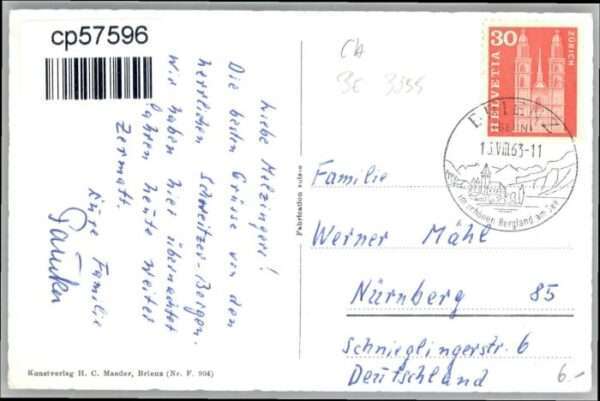 cp57596
Liebe Metzingers!
Die besten Grüsse von den
herrlichen Schweitzer-Bergen.
Wir haben hier übernachtet
fahren heute weiter
Zermatt.
Eure Familie
Kunstverlag H. C. Maeder, Brienz (Nr. F. 904)
Fabrication suisse
CH
BE 3855
30
HELVETIA
ZÜRICH
BRIENZ
(BERN)
13.VIII.63-11
im schönen Bergland am See
Familie
Werner Mähl
Nürnberg 85
Schnieglingerstr. 6
Deutschland
6.-